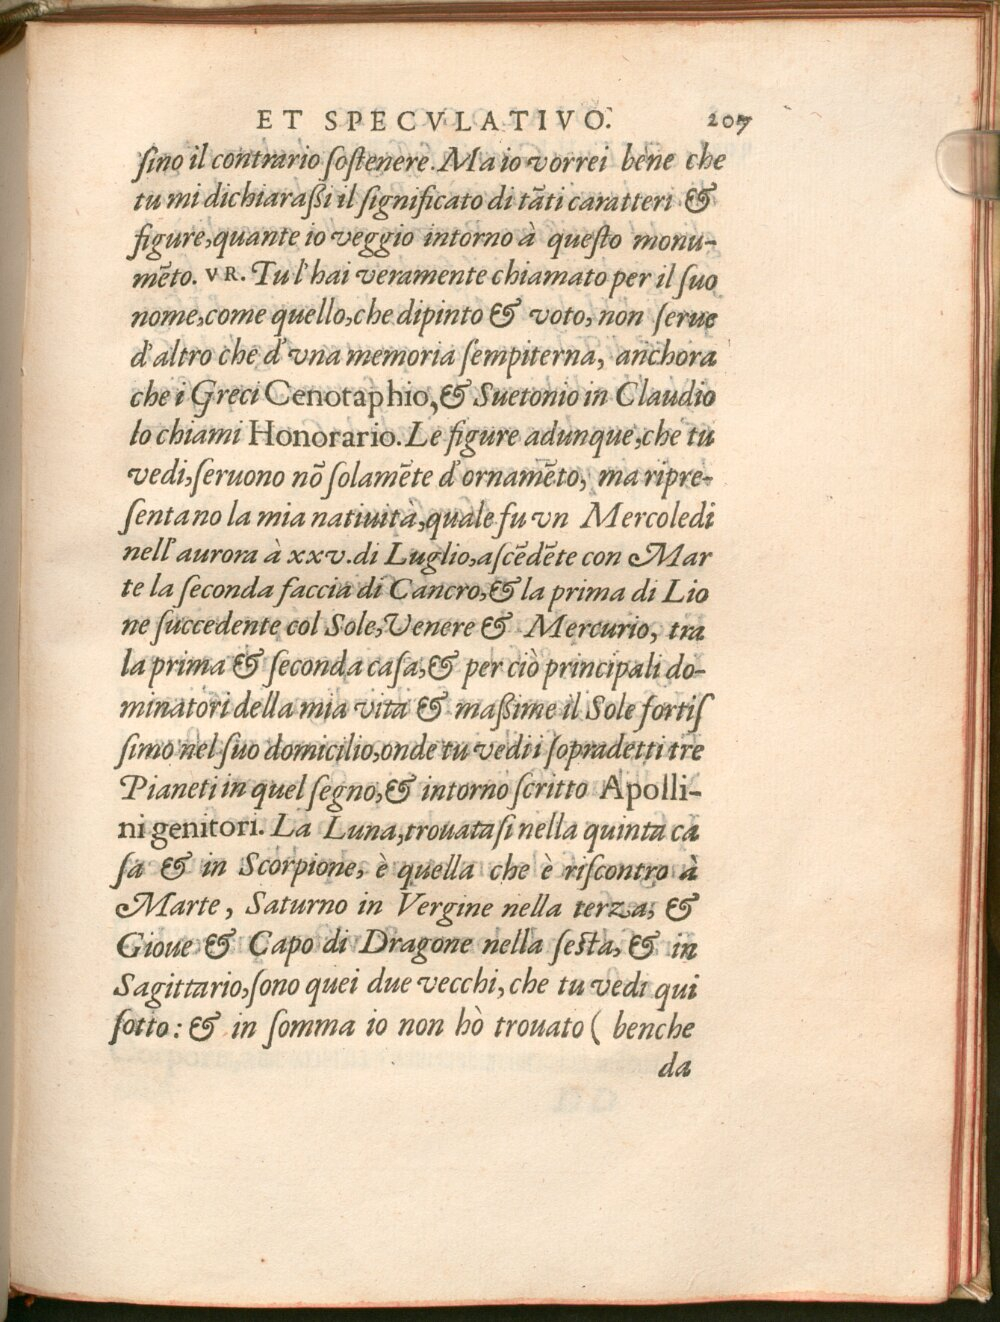 ET SPECVLATIVO. 207
ſino il contrario ſoſtenere. Ma io vorrei bene che
tu mi dichiaraßi il ſignificato di tãti caratteri &
figure, quante io veggio intorno à queſto monu-
mẽto. VR. Tu l'hai veramente chiamato per il ſuo
nome, come quello, che dipinto & voto, non ſerue
d'altro che d'vna memoria ſempiterna, anchora
che i Greci Cenotaphio, & Suetonio in Claudio
lo chiami Honorario. Le figure adunque, che tu
vedi, ſeruono nõ ſolamẽte d'ornamẽto, ma ripre-
ſentano la mia natiuità, quale fu vn Mercoledi
nell'aurora à xxv. di Luglio, aſcẽdẽte con Mar
te la ſeconda faccia di Cancro, & la prima di Lio
ne ſuccedente col Sole, Venere & Mercurio, tra
la prima & ſeconda caſa, & per ciò principali do-
minatori della mia vita & maßime il Sole fortiſ
ſimo nel ſuo domicilio, onde tu vedi i ſopradetti tre
Pianeti in quel ſegno, & intorno ſcritto Apolli-
ni genitori. La Luna, trouataſi nella quinta ca
ſa & in Scorpione, è quella che è riſcontro à
Marte, Saturno in Vergine nella terza, &
Gioue & Capo di Dragone nella ſeſta, & in
Sagittario, ſono quei due vecchi, che tu vedi qui
ſotto: & in ſomma io non hò trouato ( benche
da